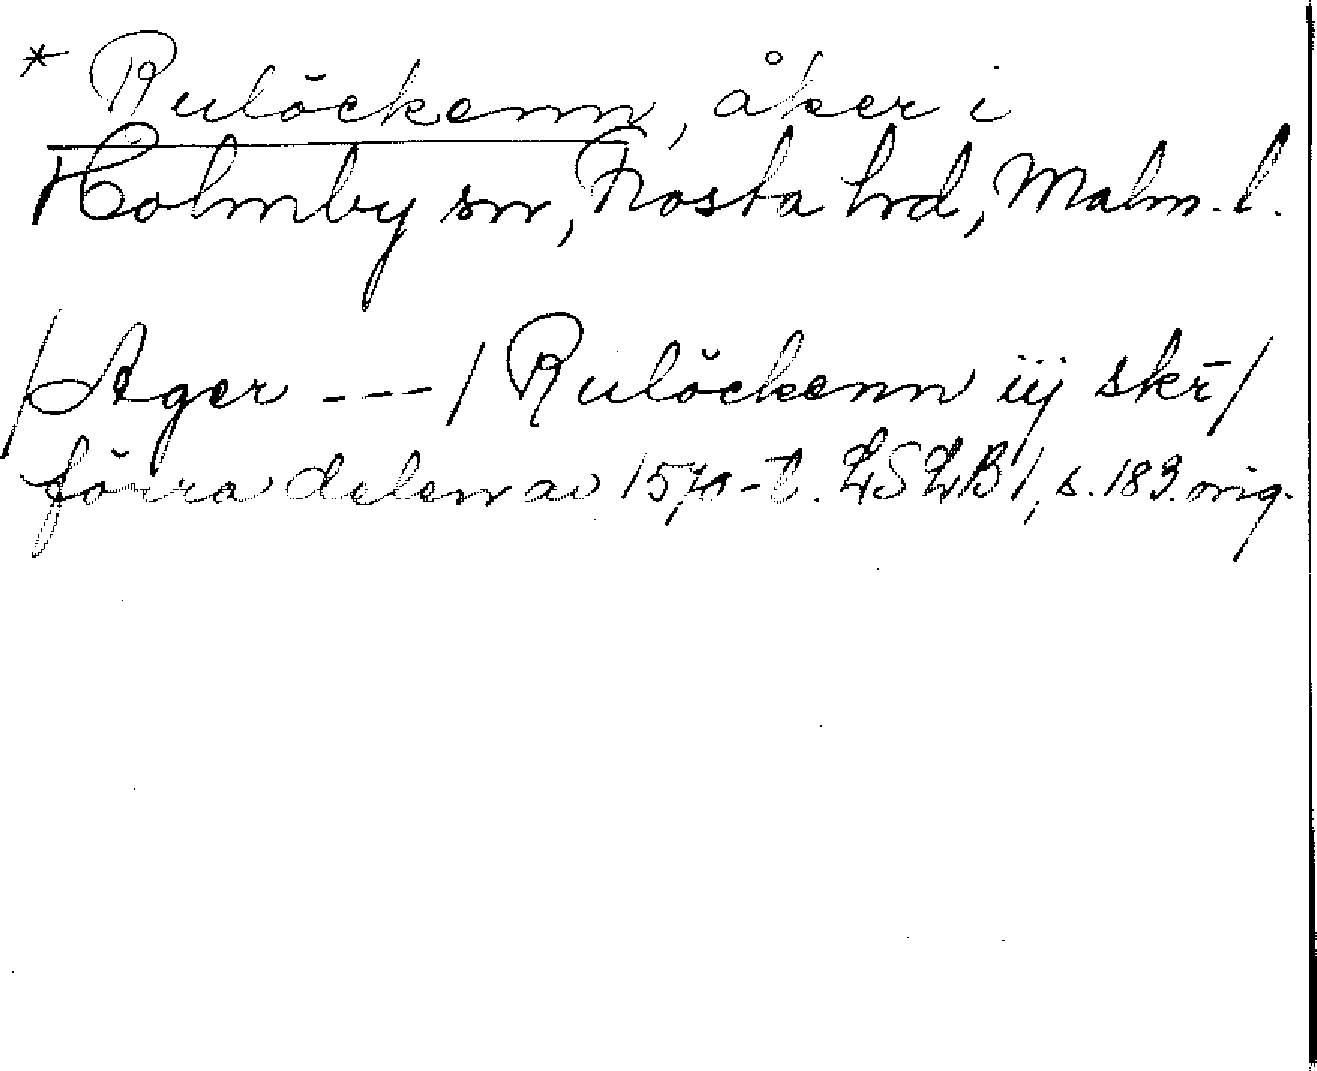 * Rulöckenn, åker i
Holmby sn, Frosta hrd, Malm. l.
/Ager --- / Rulöckenn iij skr̄ /
förra delen av 1570-t. LSLB 1, s. 183. orig.